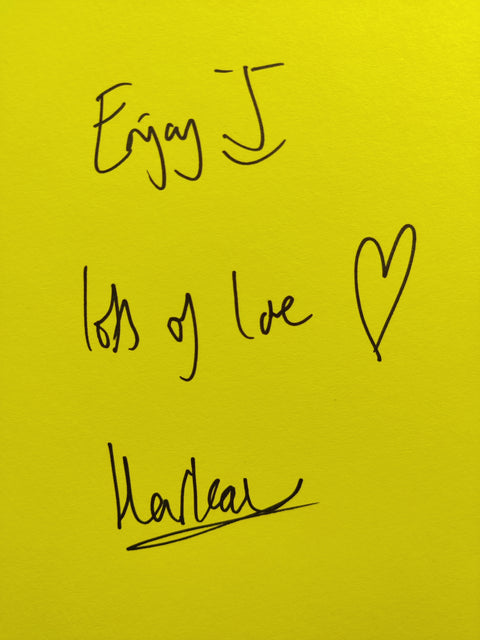 Enjoy J
lots of love